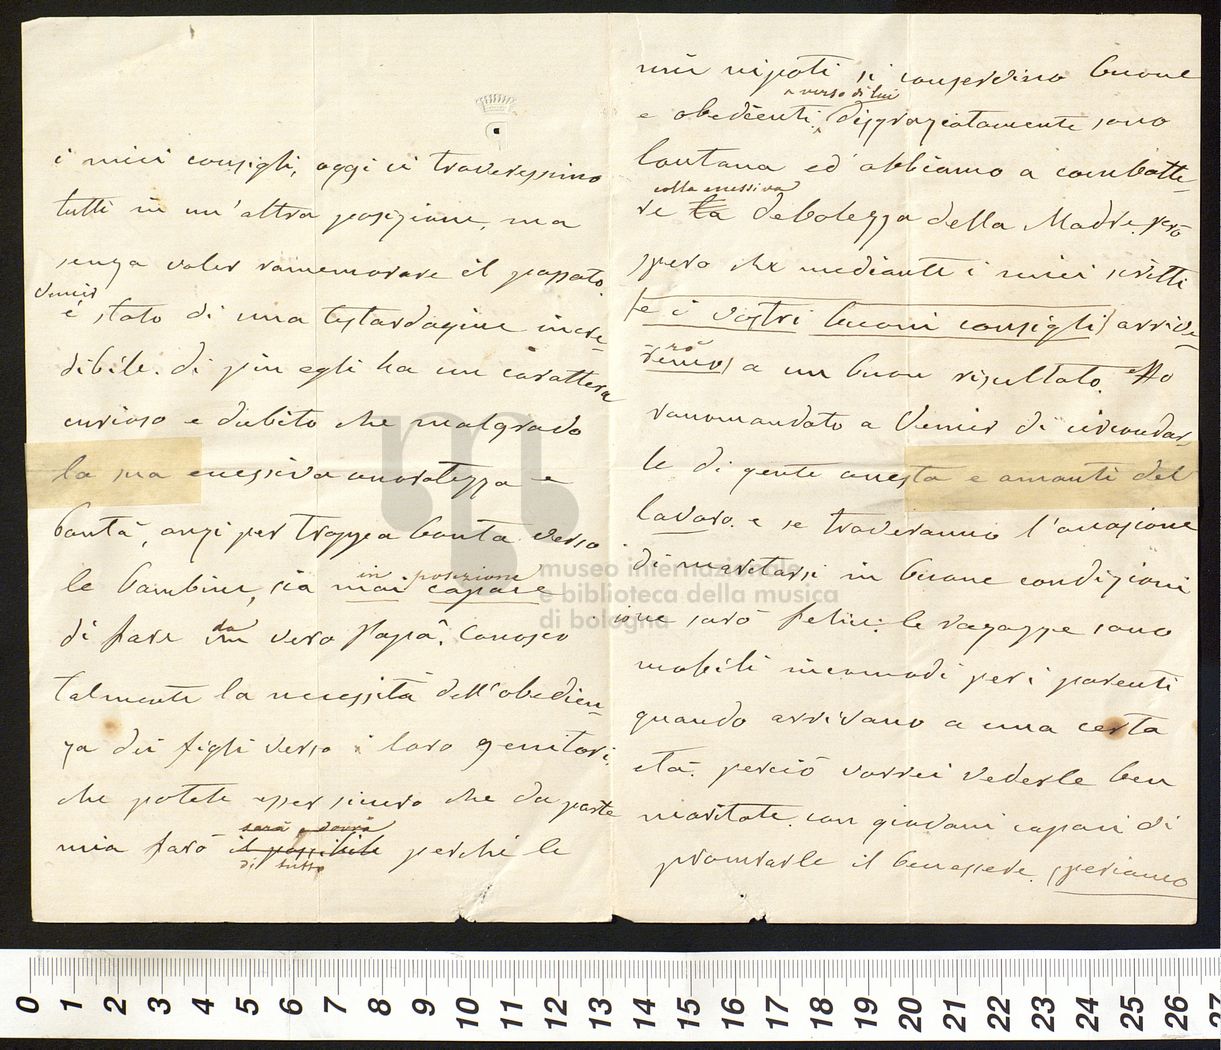 i miei consigli, oggi si troveressimo
tutti in un'altra posizione, ma
senza voler rammemorare il passato.
Venier
é stato di una testardagine incre-
dibile. di piu egli ha un carattere
curioso e dubito che malgrado
la sua enessiva onoratezza e
bontá, anzi per troppa bonta verso
le bambine, sia mai capace
in posizione
di fare un vero Papá. Conosco
da
talmente la necessitá dell'obedien-
za dei figli verso i loro genitori.
che potete esser sicuro che da parte
sará e dovrá
mia faró il possibile perché le
di tutto
mie nipoti si conservino buone
e verso di lui
e obedienti, disgraziatamente sono
lontana ed abbiamo a combatte-
colla enessiva
re la debolezza della Madre. peró
spero che mediante i miei scritti
(e i vostri buoni consigli) arrive-
ró
remo) a un buon risultato. Ho
racomandato a Venier di circondar-
le di gente onesta e amanti del
lavoro. e se troveranno l'occasione
di maritarsi in buone condizioni
ione saró felice. le ragazze sono
mobili incomodi per i parenti
quando arrivano a una certa
etá. perció vorrei vederle ben
maritate con giovani capaci di
procurarle il benessere. speriamo
museo internazionale
e biblioteca della musica
di bologna
0 1 2 3 4 5 6 7 8 9 10 11 12 13 14 15 16 17 18 19 20 21 22 23 24 25 26 27